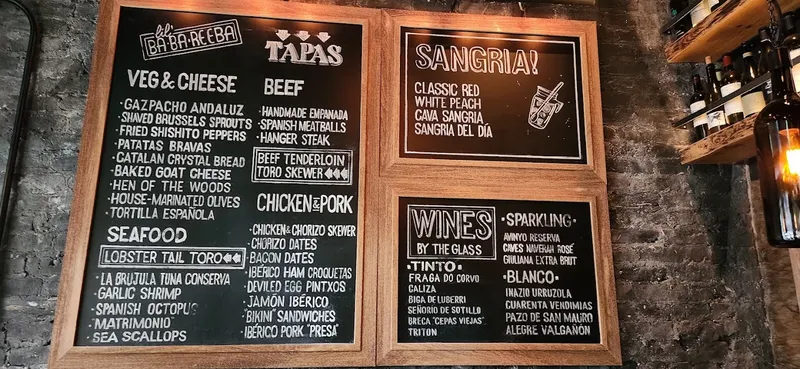 lil'
BA-BA-REEBA
TAPAS
VEG & CHEESE
• GAZPACHO ANDALUZ
• SHAVED BRUSSELS SPROUTS
• FRIED SHISHITO PEPPERS
• PATATAS BRAVAS
• CATALAN CRYSTAL BREAD
• BAKED GOAT CHEESE
• HEN OF THE WOODS
• HOUSE-MARINATED OLIVES
• TORTILLA ESPAÑOLA
SEAFOOD
LOBSTER TAIL TORO
• LA BRUJULA TUNA CONSERVA
• GARLIC SHRIMP
• SPANISH OCTOPUS
• "MATRIMONIO"
• SEA SCALLOPS
BEEF
• HANDMADE EMPANADA
• SPANISH MEATBALLS
• HANGER STEAK
BEEF TENDERLOIN
TORO SKEWER
CHICKEN & PORK
• CHICKEN & CHORIZO SKEWER
CHORIZO DATES
• BACON DATES
• IBÉRICO HAM CROQUETAS
• DEVILED EGG PINTXOS
• JAMÓN IBÉRICO
• "BIKINI" SANDWICHES
• IBÉRICO PORK "PRESA"
SANGRIA!
CLASSIC RED
WHITE PEACH
CAVA SANGRIA
SANGRIA DEL DÍA
WINES
BY THE GLASS
• TINTO •
FRAGA DO CORVO
CALIZA
BIGA DE LUBERRI
SEÑORIO DE SOTILLO
BRECA "CEPAS VIEJAS"
TRITON
• SPARKLING •
AVINYO RESERVA
CAVES NAVERAN ROSÉ
GIULIANA EXTRA BRUT
• BLANCO •
INAZIO URRUZOLA
CUARENTA VENDIMIAS
PAZO DE SAN MAURO
ALEGRE VALGAÑÓN